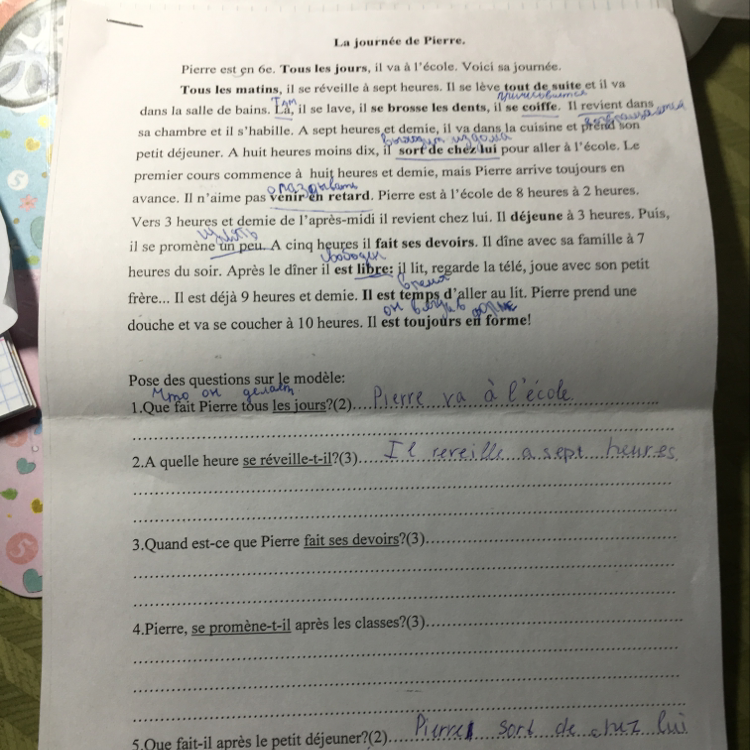 La journée de Pierre.
Pierre est en 6e. Tous les jours, il va à l'école. Voici sa journée.
Tous les matins, il se réveille à sept heures. Il se lève tout de suite et il va
Там
dans la salle de bains. Là, il se lave, il se brosse les dents, il se coiffe. Il revient dans
sa chambre et il s'habille. A sept heures et demie, il va dans la cuisine et prend son
petit déjeuner. A huit heures moins dix, il sort de chez lui pour aller à l'école. Le
premier cours commence à huit heures et demie, mais Pierre arrive toujours en
avance. Il n'aime pas venir en retard. Pierre est à l'école de 8 heures à 2 heures.
Vers 3 heures et demie de l'après-midi il revient chez lui. Il déjeune à 3 heures. Puis,
il se promène un peu. A cinq heures il fait ses devoirs. Il dîne avec sa famille à 7
heures du soir. Après le dîner il est libre: il lit, regarde la télé, joue avec son petit
время
frère... Il est déjà 9 heures et demie. Il est temps d'aller au lit. Pierre prend une
douche et va se coucher à 10 heures. Il est toujours en forme!
Pose des questions sur le modèle:
Что он делает
1.Que fait Pierre tous les jours?(2) Pierre va à l'école
2.A quelle heure se réveille-t-il?(3) Il reveille a sept heures
3.Quand est-ce que Pierre fait ses devoirs?(3)
4.Pierre, se promène-t-il après les classes?(3)
5.Que fait-il après le petit déjeuner?(2) Pierre sort de chez lui